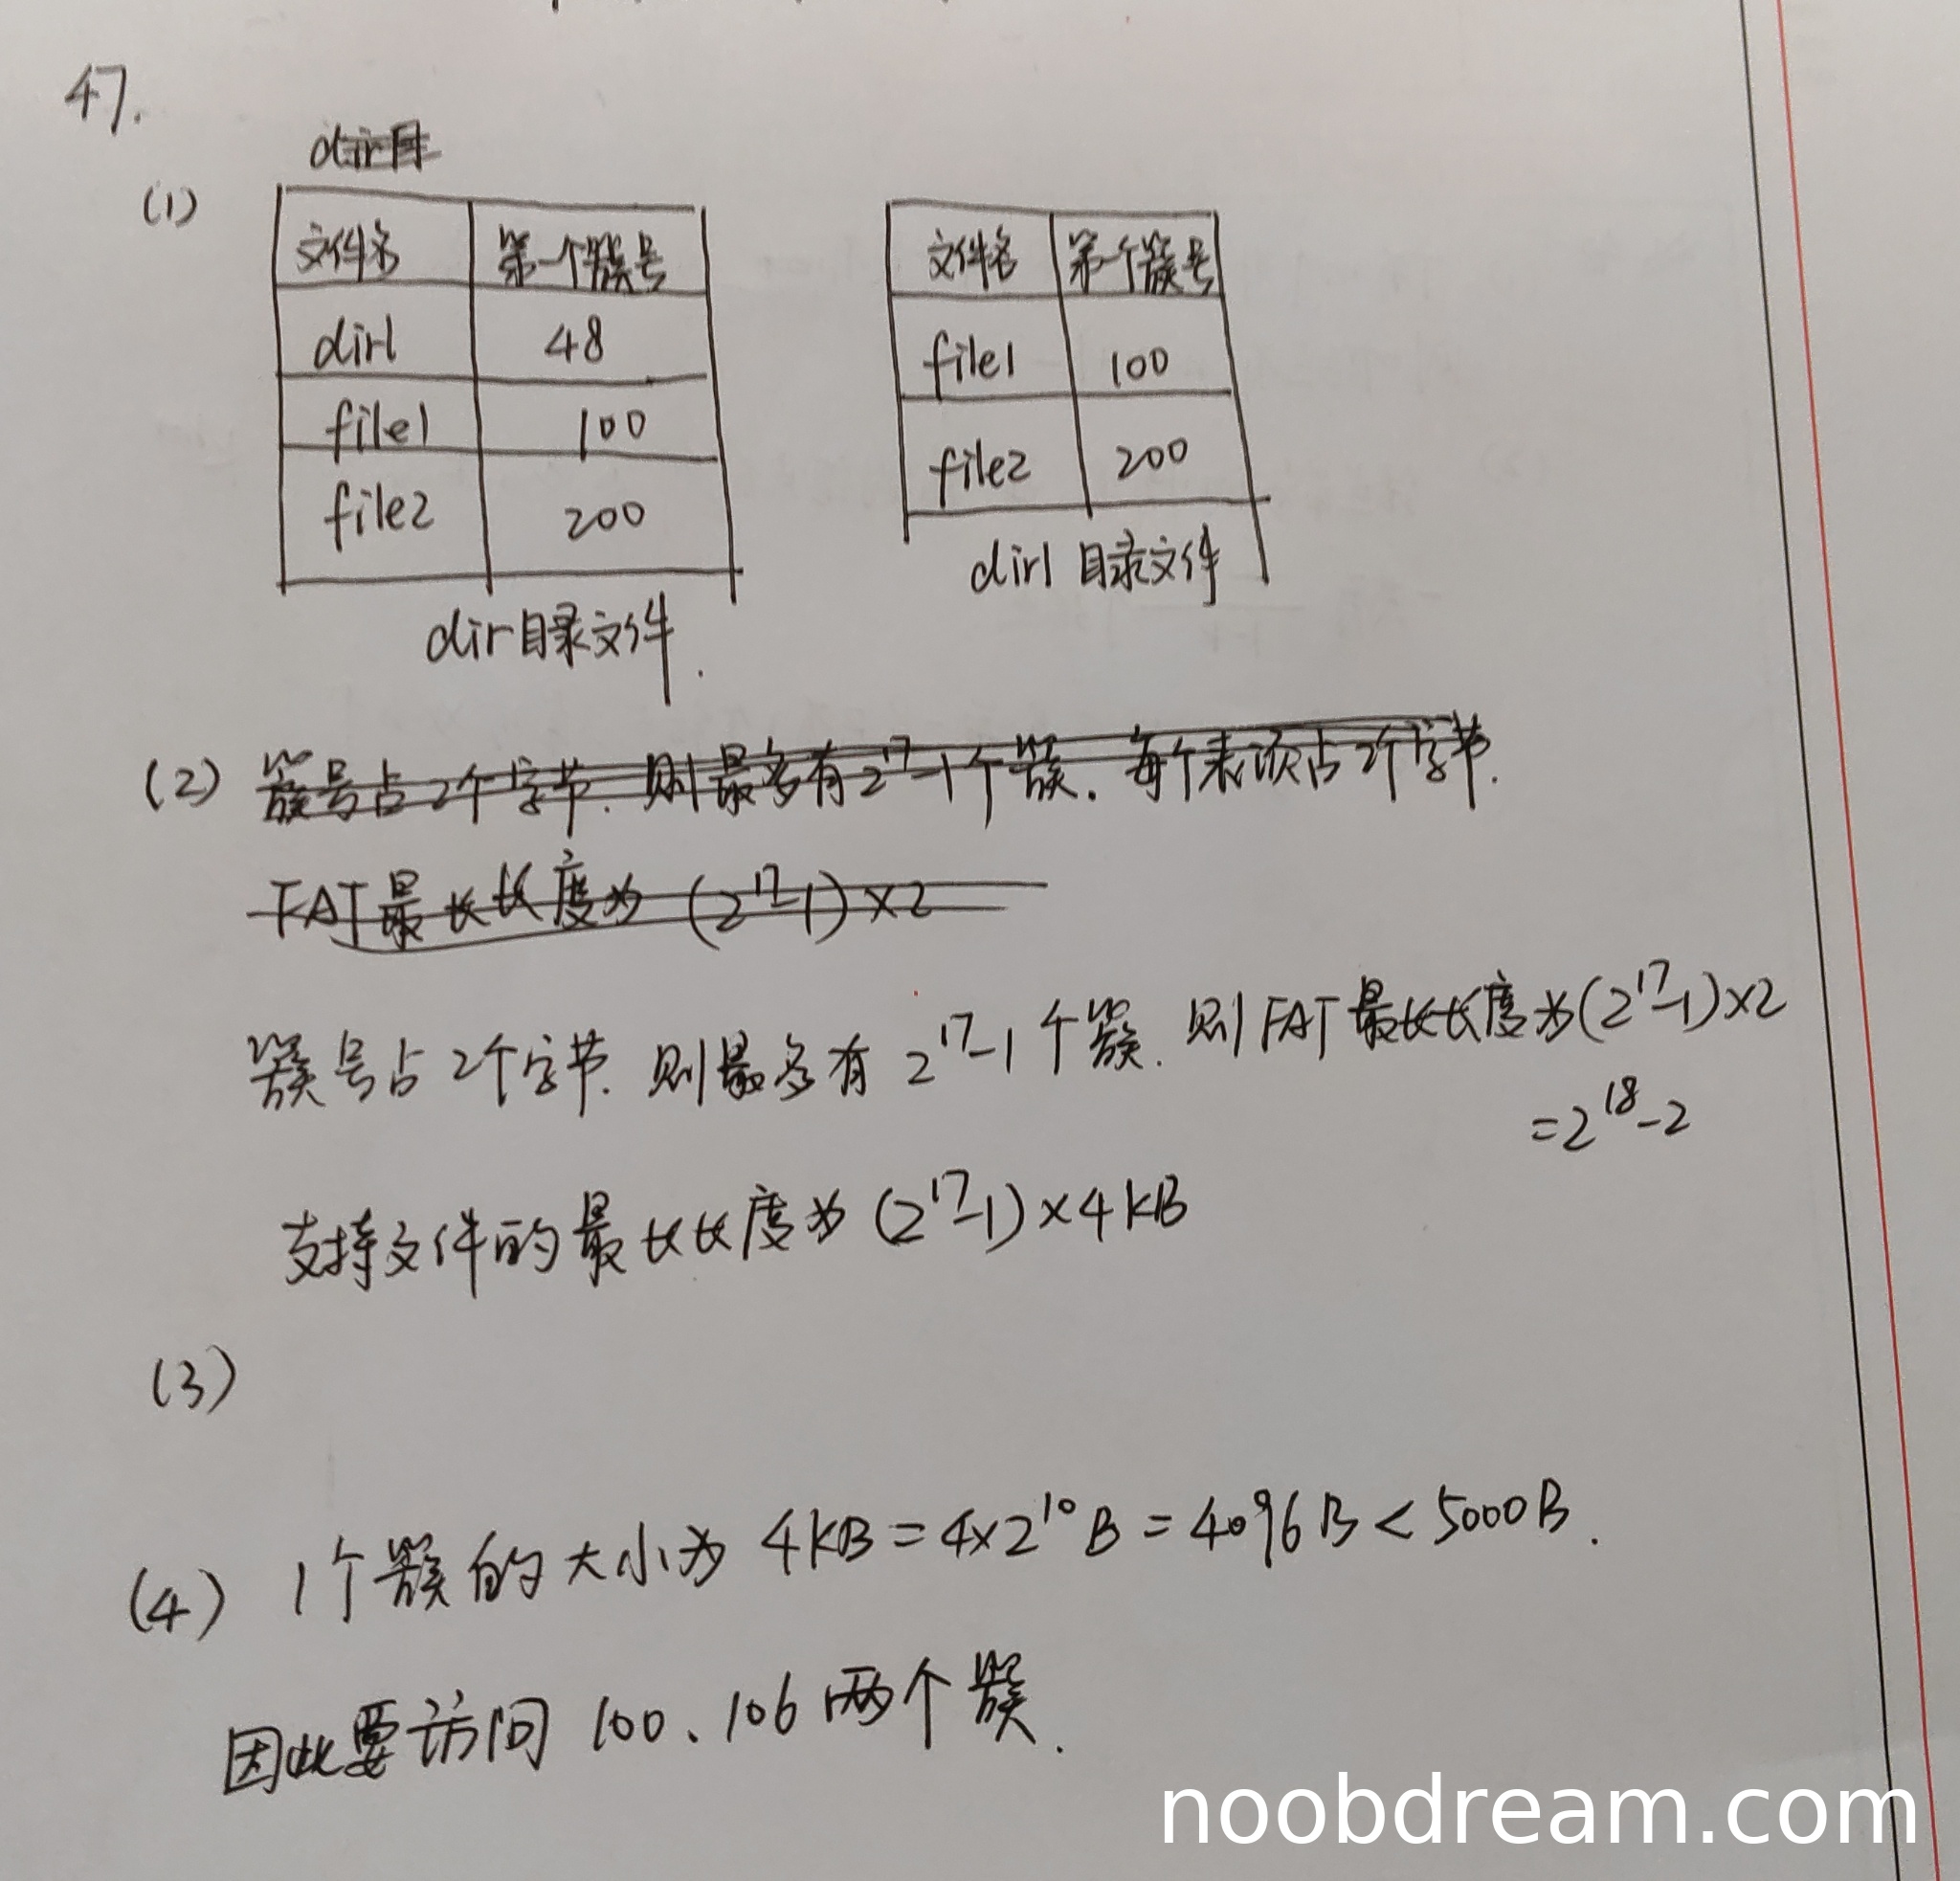 47.
dir目
(1)
文件名 第一个簇号
dir1 48
file1 100
file2 200
dir目录文件.
文件名 第一个簇号
file1 100
file2 200
dir1 目录文件
(2) 簇号占2个字节. 则最多有2^17-1个簇. 每个表项占2个字节.
FAT最长长度为 (2^17-1)×2
簇号占2个字节. 则最多有 2^17-1个簇. 则FAT最长长度为(2^17-1)×2
=2^18-2
支持文件的最长长度为(2^17-1)×4KB
(3)
(4) 1个簇的大小为 4KB=4×2^10 B=4096B<5000B.
因此要访问 100、106 两个簇.
noobdream.com